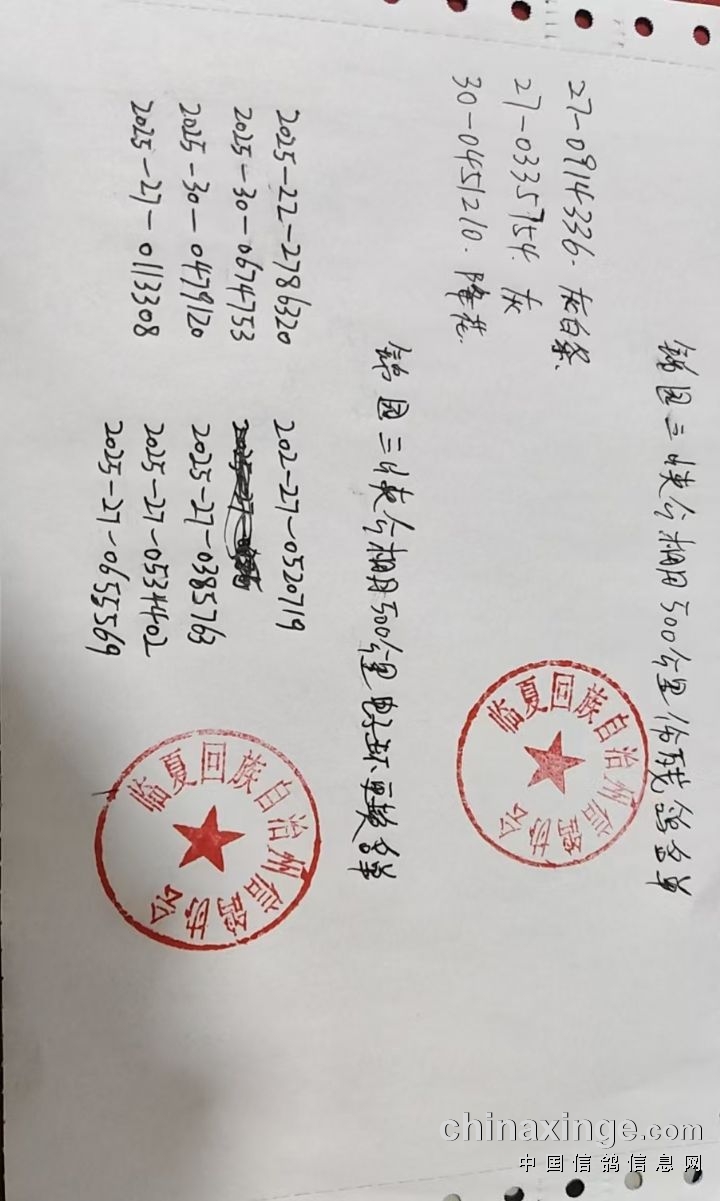 锦园三快公棚月500公里伤残鸽名单
27-0914336. 灰白条.
27-0335754. 灰
30-0451210. 隆花.
锦园三快公棚月500公里电子环更换名单
2025-22-2786320
2025-30-0674753
2025-30-0479120
2025-27-0113308
202-27-0520719
2025-27-0385763
2025-27-0534402
2025-27-0655569
临夏回族自治州信鸽协会
临夏回族自治州信鸽协会
chinaxinge.com
中国信鸽信息网